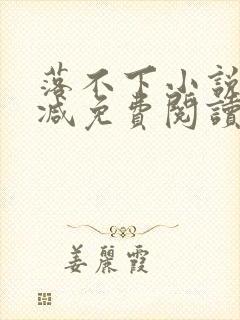 落不下小說
減免費閱讀
姜麗霞